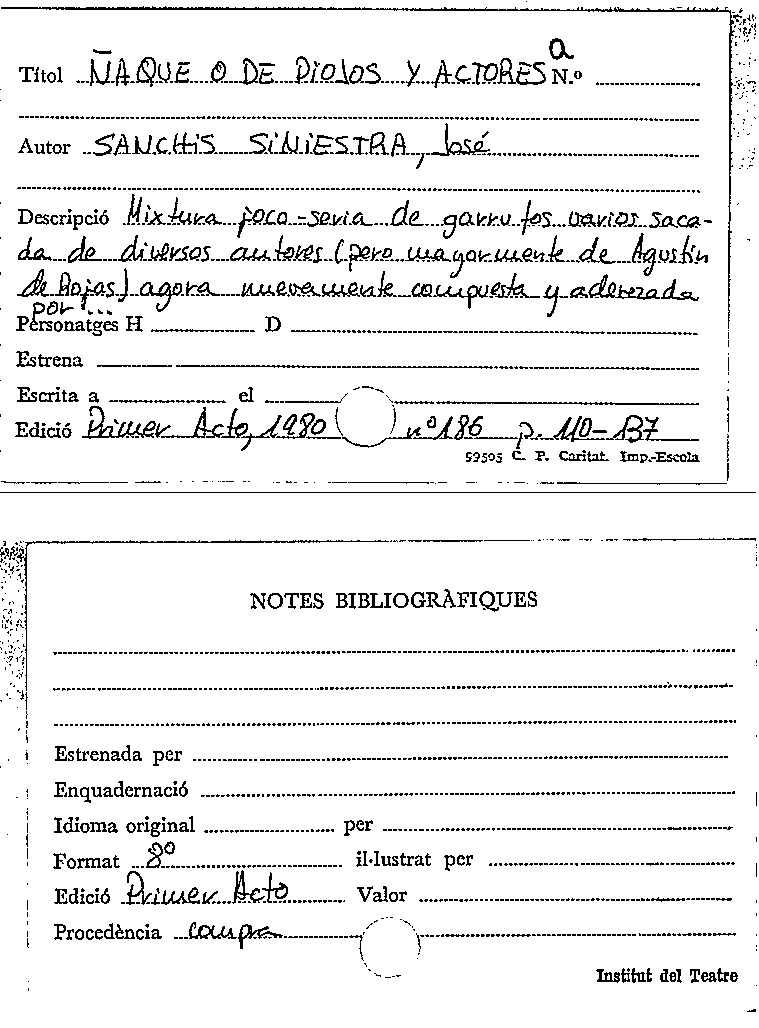 a
Títol ÑAQUE O DE PIOJOS Y ACTORES N.º
Autor SANCHIS SINIESTRA, José
Descripció Mixtura joco-seria de garrufos varios saca-
da de diversos autores (pero mayormente de Agustín
de Rojas) agora nuevamente compuesta y aderezada
por ...
Personatges H D
Estrena
Escrita a el
Edició Primer Acto, 1980 nº 186 p. 110-137
59505 C. P. Caritat. Imp.-Escola
NOTES BIBLIOGRÀFIQUES
Estrenada per
Enquadernació
Idioma original per
Format 8º il·lustrat per
Edició Primer Acto Valor
Procedència compra
Institut del Teatre